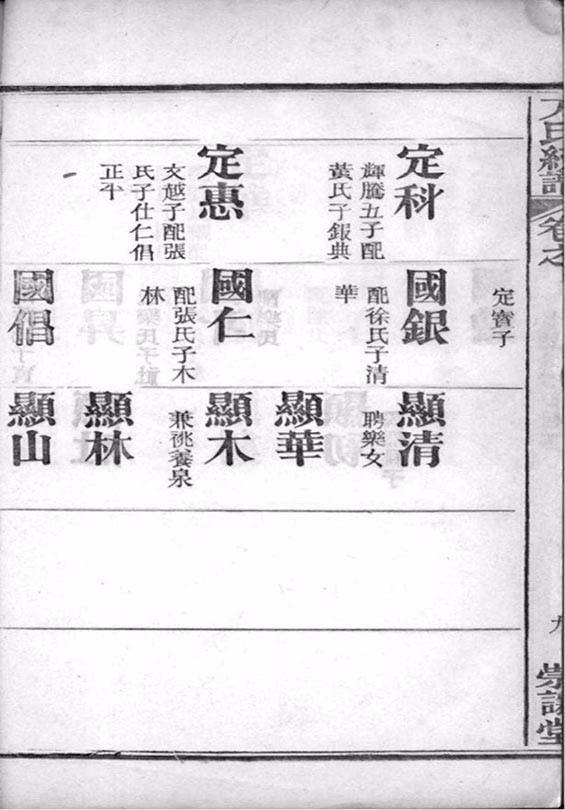 卷之
九
定科
輝騰五子配
黃氏子銀典
定惠
文越子配張
氏子仕仁倡
正平
定寶子
國銀
配徐氏子清
華
國仁
配張氏子木
林
國倡
顯清
聘樂女
顯華
顯木
兼祧養泉
顯林
顯山